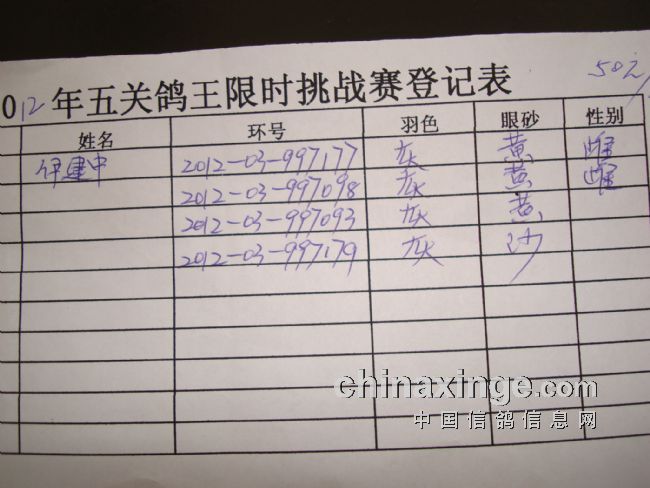 012年五关鸽王限时挑战赛登记表
姓名 环号 羽色 眼砂 性别
伊建中 2012-03-997177 灰 黄 雌
2012-03-997098 灰 黄 雌
2012-03-997093 灰 黄
2012-03-997179 灰 沙
chinaxinge.com
中国信鸽信息网